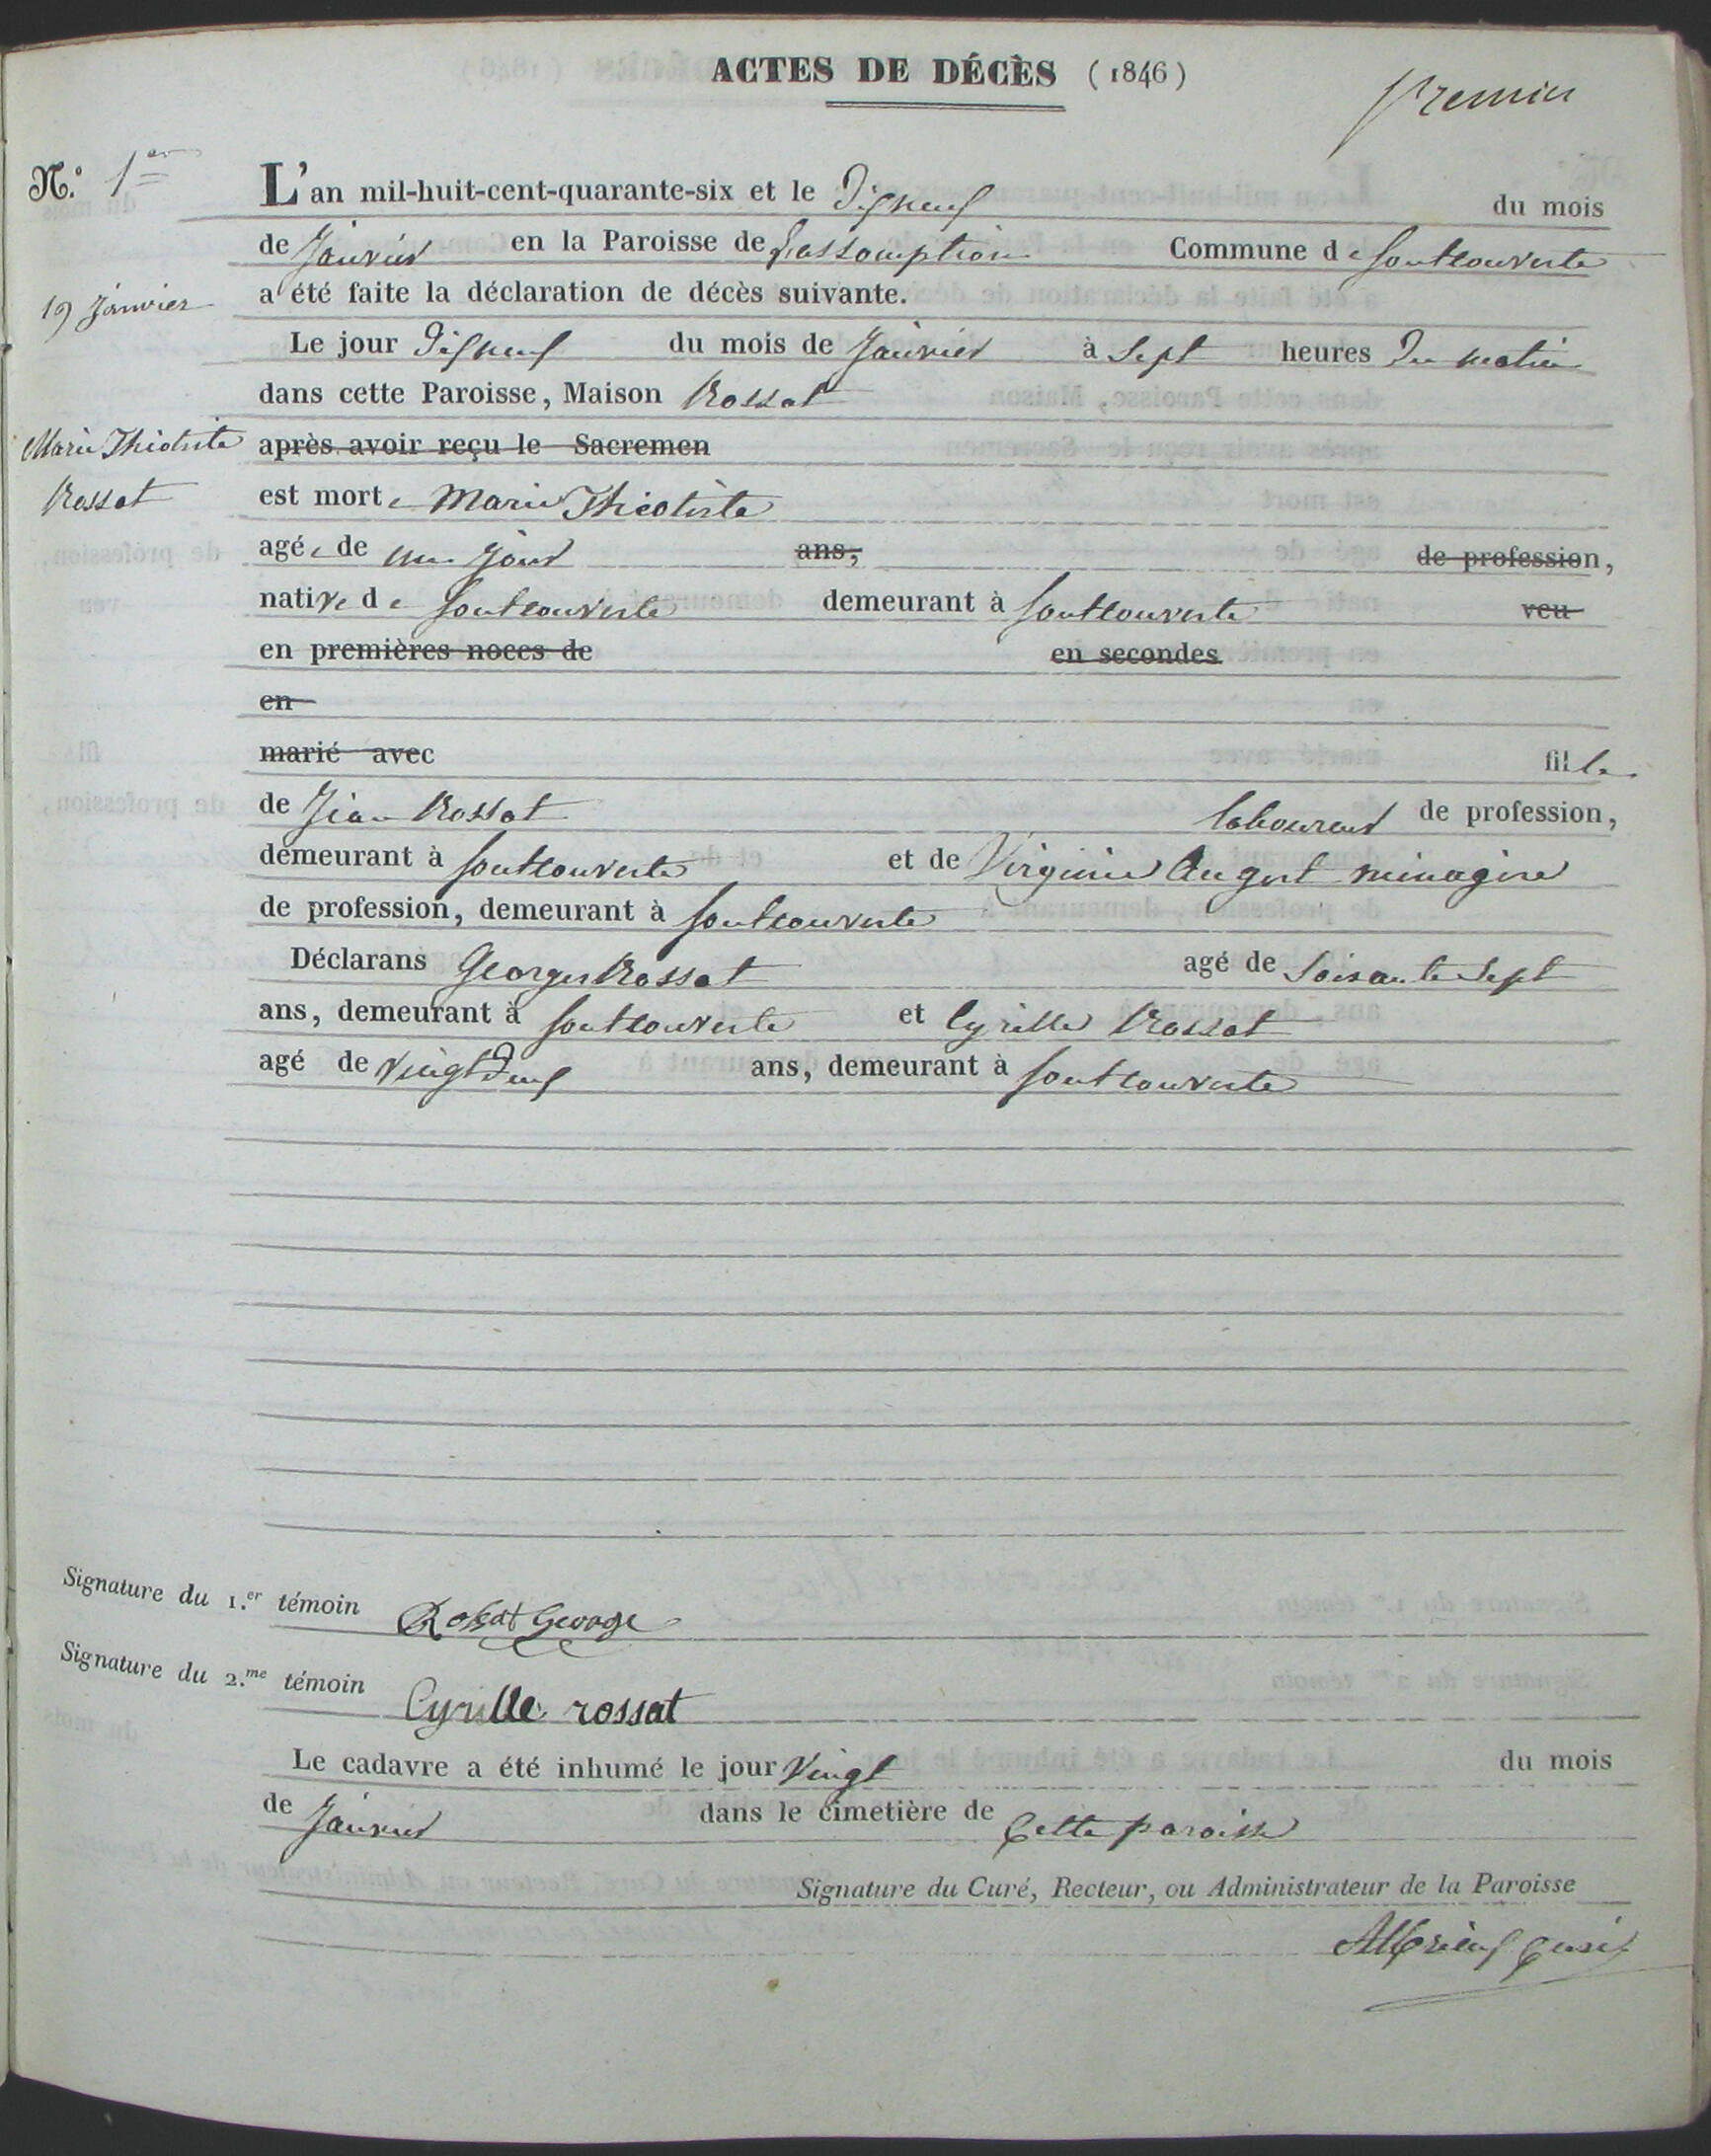 ACTES DE DÉCÈS (1846)
premier
N.º 1er
L'an mil-huit-cent-quarante-six et le Disneuf du mois
de Janvier en la Paroisse de Lassomption Commune de fontcouverte
19 Janvier
a été faite la déclaration de décès suivante.
Le jour Disneuf du mois de Janvier à Sept heures Du matin
dans cette Paroisse, Maison Rossat
Marie Théotiste
Rossat
après avoir reçu le Sacremen
est morte Marie Théotiste
agée de un jour ans, de profession,
native de fontcouverte demeurant à fontcouverte veu
en premières noces de en secondes
en
marié avec fille
de Jean Rossat laboureur de profession,
demeurant à fontcouverte et de Virginie Augert ménagère
de profession, demeurant à fontcouverte
Déclarans Georges Rossat agé de Soisante Sept
ans, demeurant à fontcouverte et Cyrille Rossat
agé de vingt Deuf ans, demeurant à fontcouverte
Signature du 1.er témoin Rossat George
Signature du 2.me témoin Cyrille rossat
Le cadavre a été inhumé le jour vingt du mois
de Janvier dans le cimetière de cette paroisse
Signature du Curé, Recteur, ou Administrateur de la Paroisse
curé